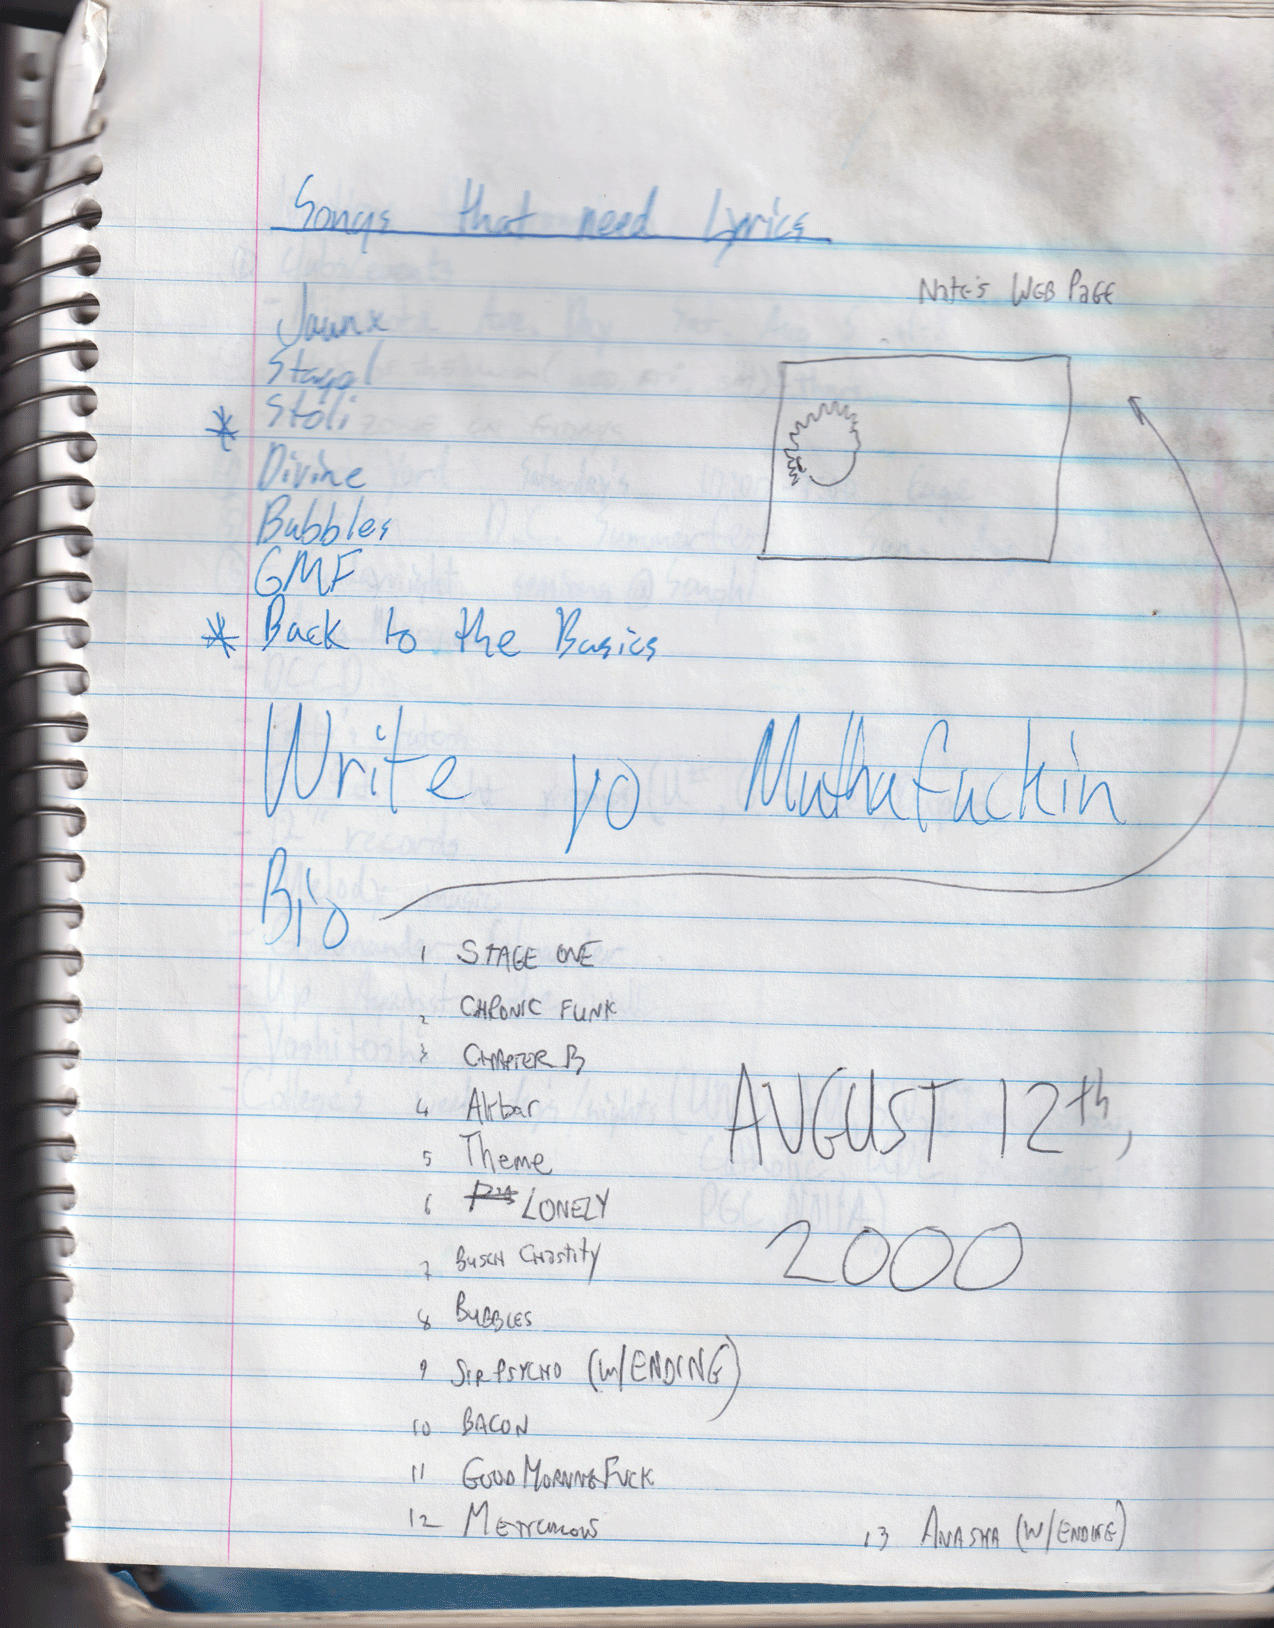 Songs that need Lyrics
Nate's Web Page
Jaunx
Stage 1
* Stoli
Divine
Bubbles
GMF
* Back to the Basics
Write yo Muthafuckin
Bio
1 STAGE ONE
2 CHRONIC FUNK
3 CHAPTER B
4 Akbar
AUGUST 12th,
5 Theme
6 LONELY
2000
7 Busch Chastity
8 BUBBLES
9 SIR PSYCHO (W/ENDING)
10 BACON
11 GOOD MORNING FUCK
12
13 ANASHA (W/ENDING)